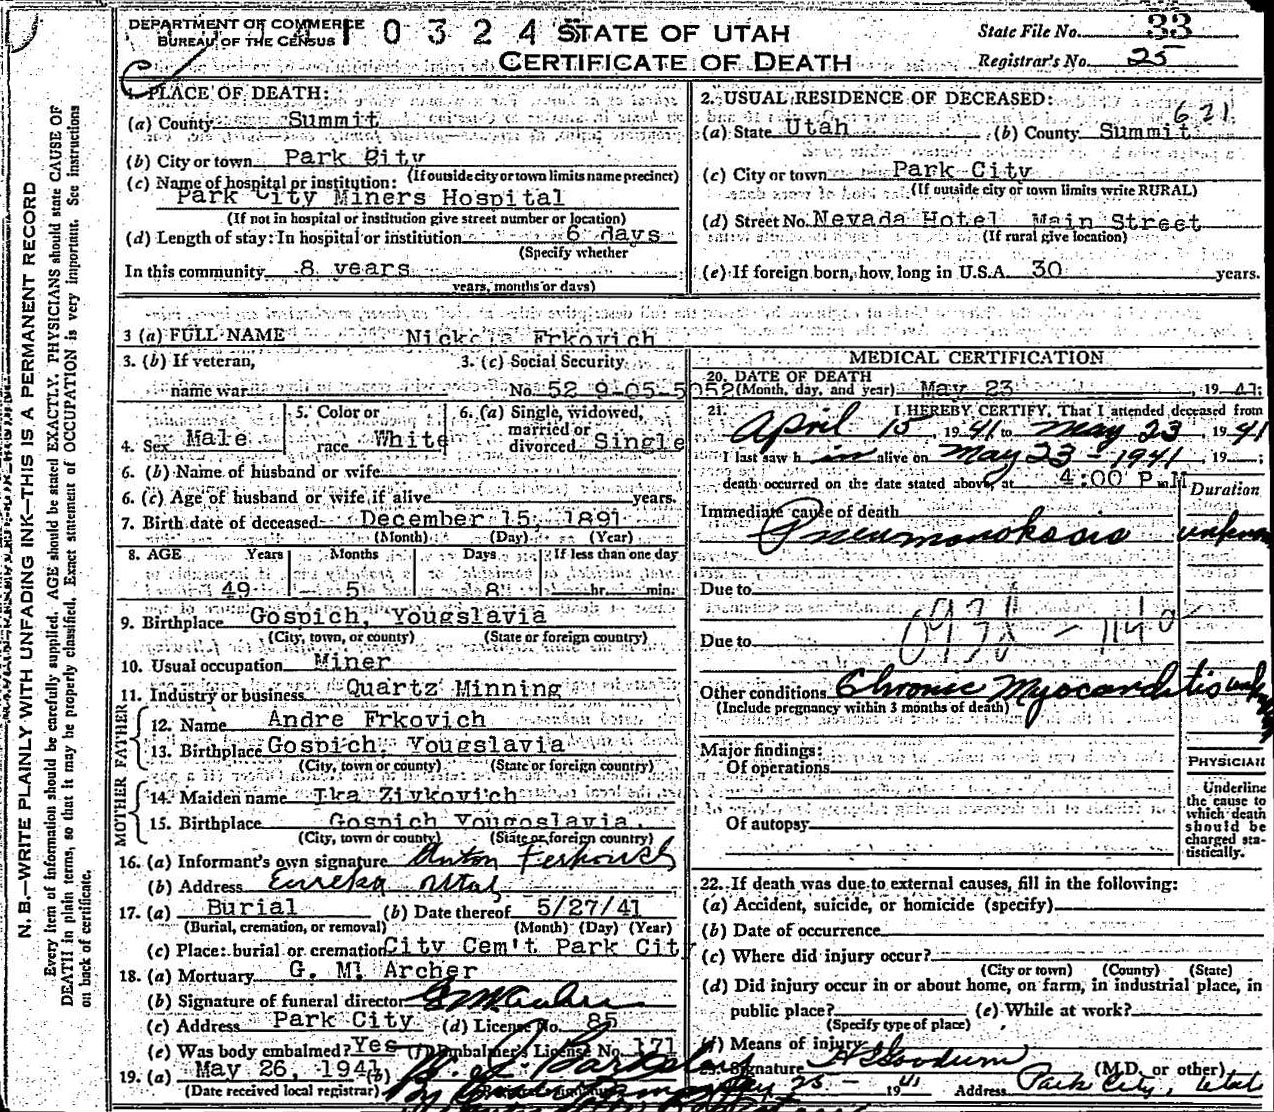 DEPARTMENT OF COMMERCE
BUREAU OF THE CENSUS
0 3 2 4
STATE OF UTAH
CERTIFICATE OF DEATH
State File No. 33
Registrar's No. 25
N. B.—WRITE PLAINLY WITH UNFADING INK—THIS IS A PERMANENT RECORD
Every item of information should be carefully supplied. AGE should be stated EXACTLY. PHYSICIANS should state CAUSE OF
DEATH in plain terms, so that it may be properly classified. Exact statement of OCCUPATION is very important. See instructions
on back of certificate.
1. PLACE OF DEATH:
(a) County Summit
(b) City or town Park City
(If outside city or town limits name precinct)
(c) Name of hospital or institution:
Park City Miners Hospital
(If not in hospital or institution give street number or location)
(d) Length of stay: In hospital or institution 6 days
(Specify whether
In this community 8 years
years, months or days)
2. USUAL RESIDENCE OF DECEASED:
6 21
(a) State Utah (b) County Summit
(c) City or town Park City
(If outside city or town limits write RURAL)
(d) Street No. Nevada Hotel Main Street
(If rural give location)
(e) If foreign born, how long in U.S.A. 30 years.
3 (a) FULL NAME Nickola Frkovich
3. (b) If veteran, name war
3. (c) Social Security No. 52 9-05-5052
4. Sex Male
5. Color or race White
6. (a) Single, widowed, married or divorced Single
6. (b) Name of husband or wife
6. (c) Age of husband or wife, if alive years.
7. Birth date of deceased December 15, 1891
(Month) (Day) (Year)
8. AGE Years Months Days If less than one day
49 5 8 hr. min.
9. Birthplace Gospich, Yougslavia
(City, town, or county) (State or foreign country)
10. Usual occupation Miner
11. Industry or business Quartz Minning
FATHER
12. Name Andre Frkovich
13. Birthplace Gospich, Yougslavia
(City, town or county) (State or foreign country)
MOTHER
14. Maiden name Ika Zivkovich
15. Birthplace Gospich Yougoslavia.
(City, town or county) (State or foreign country)
16. (a) Informant's own signature Anton Ferkovich
(b) Address Eureka Utah
17. (a) Burial (b) Date thereof 5/27/41
(Burial, cremation, or removal) (Month) (Day) (Year)
(c) Place: burial or cremation City Cem't Park City
18. (a) Mortuary G. M. Archer
(b) Signature of funeral director G M Archer
(c) Address Park City (d) License No. 85
(e) Was body embalmed? Yes (f) Embalmer's License No. 171
19. (a) May 26, 1941 (b)
(Date received local registrar)
MEDICAL CERTIFICATION
20. DATE OF DEATH
(Month, day, and year) May 23, 19 41
21. I HEREBY CERTIFY, That I attended deceased from
April 15, 19 41 to May 23 19 41
I last saw h im alive on May 23 - 1941, 19 ;
death occurred on the date stated above, at 4:00 P.M
Duration
Immediate cause of death
Pneumonokosis
Due to
0931 - 1140
Due to
Other conditions Chronic Myocarditis
(Include pregnancy within 3 months of death)
Major findings:
Of operations
Of autopsy
PHYSICIAN
Underline
the cause to
which death
should be
charged sta-
tistically.
22. If death was due to external causes, fill in the following:
(a) Accident, suicide, or homicide (specify)
(b) Date of occurrence
(c) Where did injury occur?
(City or town) (County) (State)
(d) Did injury occur in or about home, on farm, in industrial place, in
public place? (e) While at work?
(Specify type of place)
(f) Means of injury
Signature (M.D. or other)
25 - 19 41 Address Park City, Utah